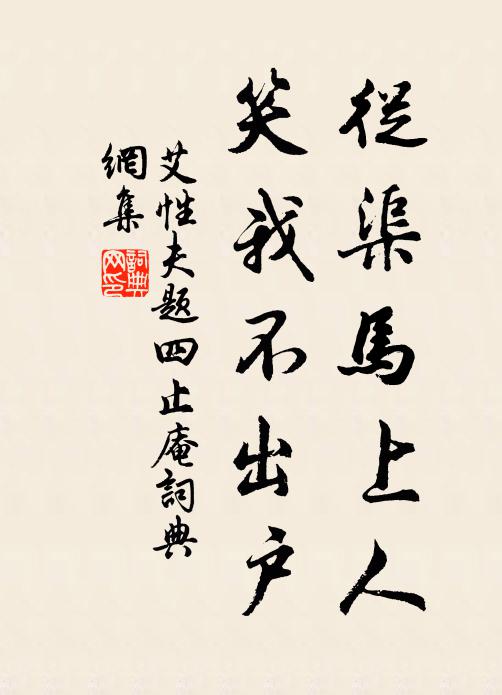 從渠馬上人
笑我不出户
艾性夫題四止庵詞典
網集
詞典
网印